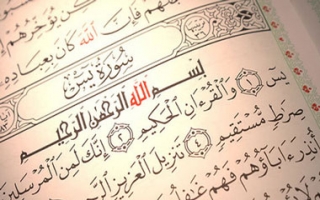 يُؤَخِّرُهُمْ
فَإِنَّ اللَّهَ كَانَ بِعِبَادِهِ
سُورَةُ يسٓ
بِسْمِ اللَّهِ الرَّحْمَٰنِ الرَّحِيمِ
يسٓ ١ وَالْقُرْءَانِ الْحَكِيمِ ٢ إِنَّكَ لَمِنَ الْمُرْسَلِينَ
صِرَٰطٍ مُّسْتَقِيمٍ ٤ تَنزِيلَ الْعَزِيزِ
أُنذِرَ ءَابَآؤُهُمْ فَهُمْ